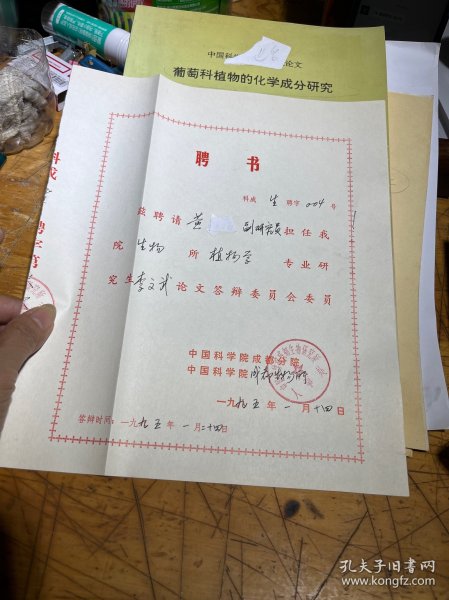 中国科学
论文
葡萄科植物的化学成分研究
聘书
科成 生 聘字 004 号
兹聘请 黄 副研究员 担任我
院 生物 所 植物学 专业研
究生 李文武 论文答辩委员会委员
中国科学院成都分院
中国科学院 成都生物所
一九九五年 一月十四日
答辩时间：一九九五年 一月二十四日
科成
聘字第
孔夫子旧书网
www.kongfz.com